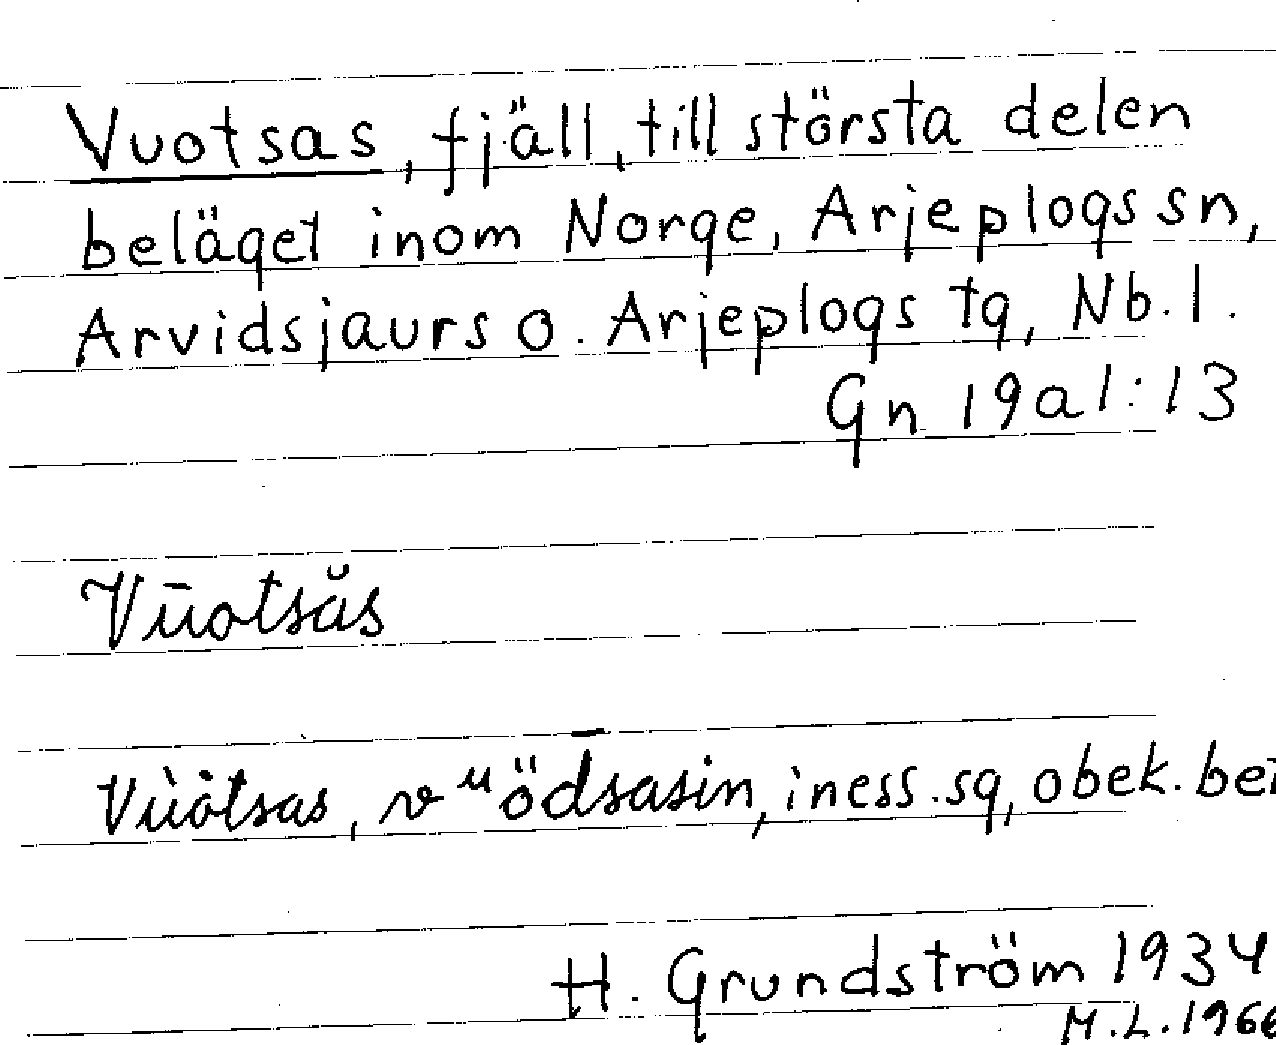 Vuotsas, fjäll, till största delen
beläget inom Norge, Arjeplogs sn,
Arvidsjaurs o. Arjeplogs tg, Nb. l.
Gn 19 a 1:13
Vūotsăs
iness. sg, obek. bet
H. Grundström 1934
M.L. 1966